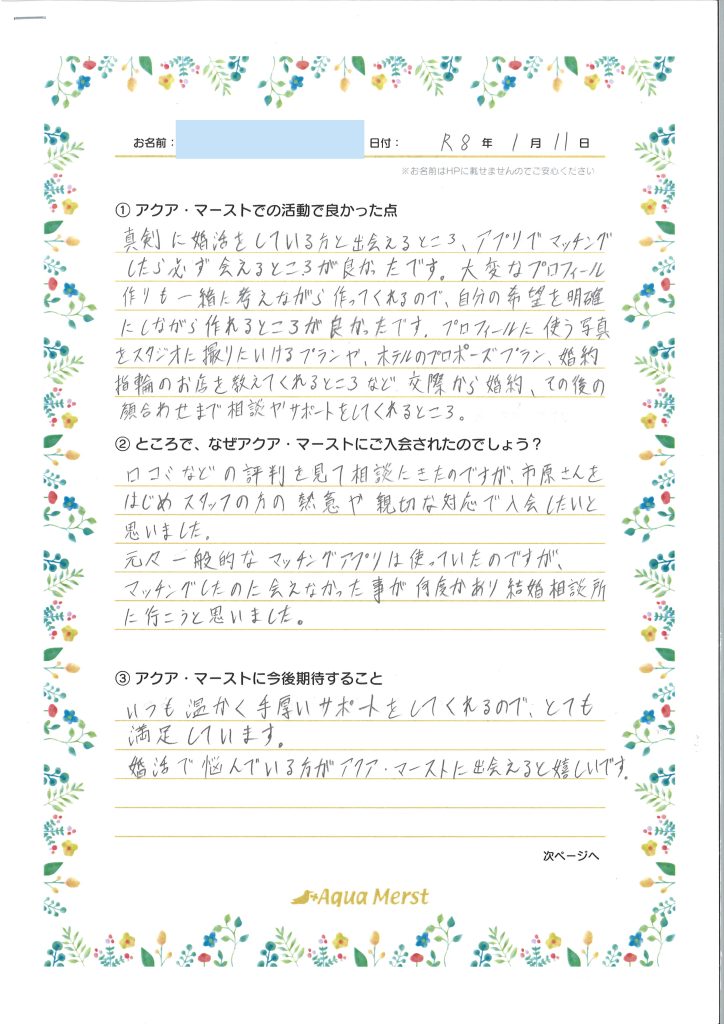 お名前：
日付： R8 年 1 月 11 日
※お名前はHPに載せませんのでご安心ください
① アクア・マーストでの活動で良かった点
真剣に婚活をしている方と出会えるところ、アプリでマッチング
したら必ず会えるところが良かったです。大変なプロフィール
作りも一緒に考えながら作ってくれるので、自分の希望を明確
にしながら作れるところが良かったです。プロフィールに使う写真
をスタジオに撮りにいけるプランや、ホテルのプロポーズプラン、婚約
指輪のお店を教えてくれるところなど交際から婚約、その後の
顔合わせまで相談やサポートをしてくれるところ。
② ところで、なぜアクア・マーストにご入会されたのでしょう？
口コミなどの評判を見て相談にきたのですが、市原さんを
はじめスタッフの方の熱意や親切な対応で入会したいと
思いました。
元々一般的なマッチングアプリは使っていたのですが、
マッチングしたのに会えなかった事が何度かあり結婚相談所
に行こうと思いました。
③ アクア・マーストに今後期待すること
いつも温かく手厚いサポートをしてくれるので、とても
満足しています。
婚活で悩んでいる方がアクア・マーストに出会えると嬉しいです。
次ページへ
Aqua Merst